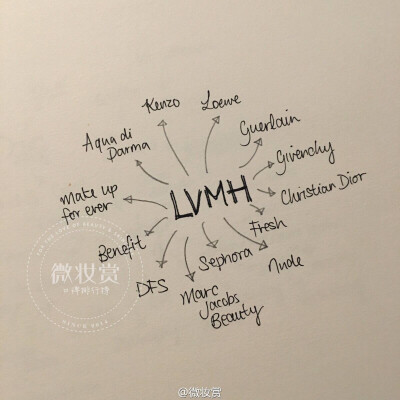 Kenzo
Loewe
Guerlain
Aqua di
Parma
Givenchy
Christian Dior
make up
for ever
LVMH
Fresh
Benefit
Sephora
nude
DFS
Marc
Jacobs
Beauty
微妆赏
SINCE 2012
@微妆赏